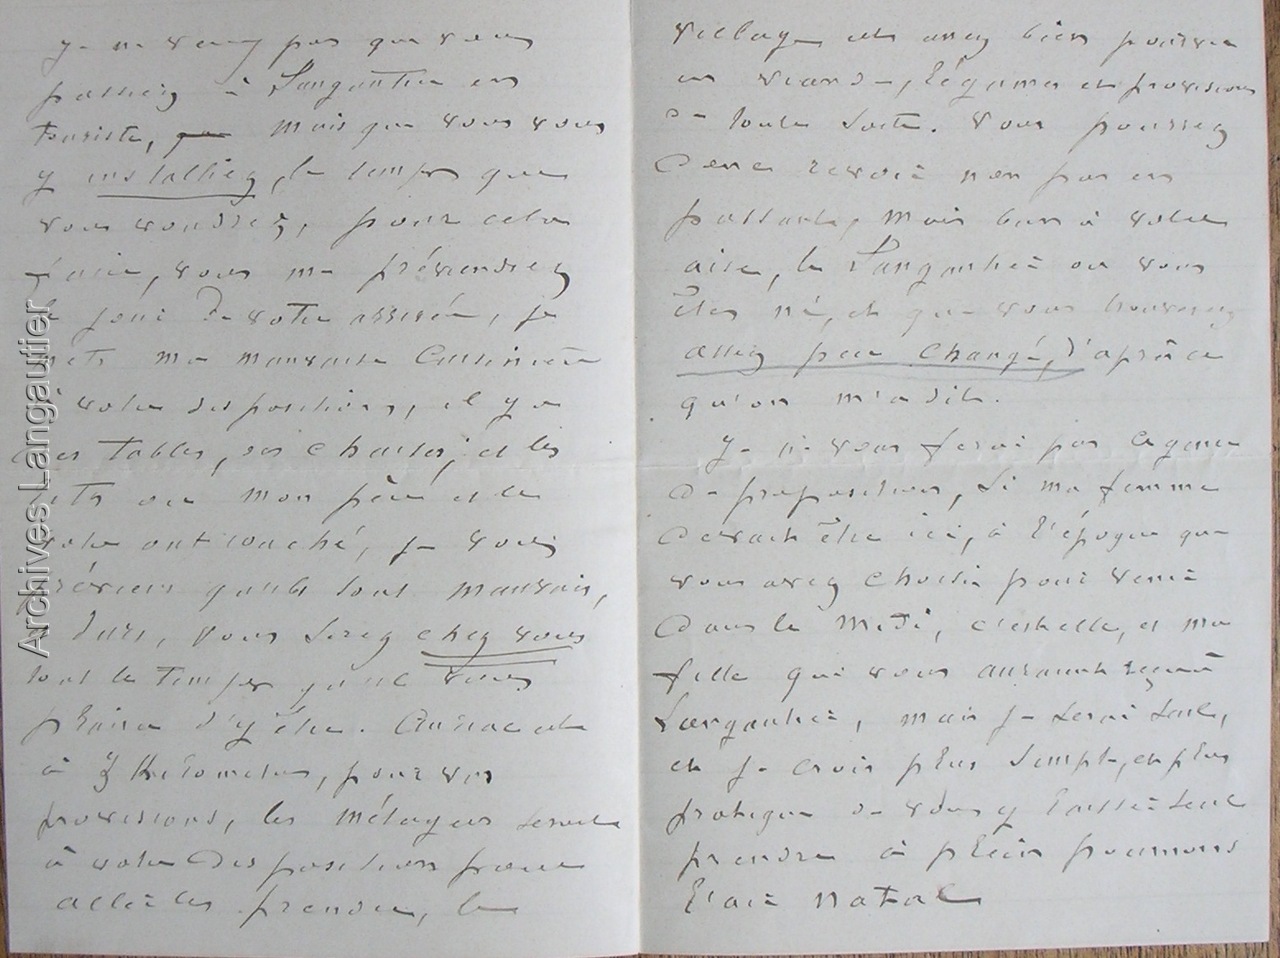 Je ne veux pas que vous
passiez à Langautier en
touriste, mais que vous vous
y installiez, le temps que
vous voudrez, pour cela
faire, vous me préviendrez
le jour de votre arrivée, je
mets ma mauvaise cuisinière
à votre disposition, il y a
des tables, des chaises, et les
lits ou mon père et le
votre ont couché, je vous
préviens qu'ils sont mauvais,
durs, vous serez chez vous
tout le temps qu'il vous
plaira d'y être. Auriac est
à 3 kilomètres, pour vos
provisions, les métayers seront
à votre disposition pour
aller les prendre, le
village est assez bien pourvu
en viande, légumes et provisions
de toute sorte. Vous pourrez
donc revoir non pas en
passant, mais bien à votre
aise, le Langautier ou vous
êtes né, et que vous trouverez
assez peu changé, d'après ce
qu'on m'a dit.
Je ne vous ferai pas ce genre
de proposition, si ma femme
devait être ici, à l'époque que
vous avez choisie pour venir
dans le Midi, c'est elle, et ma
fille qui vous auraient reçu à
Langautier, mais je serai seul,
et je crois plus simple, et plus
pratique de vous y laisser seul
prendre à plein poumons
l'air natal
Archives Langautier